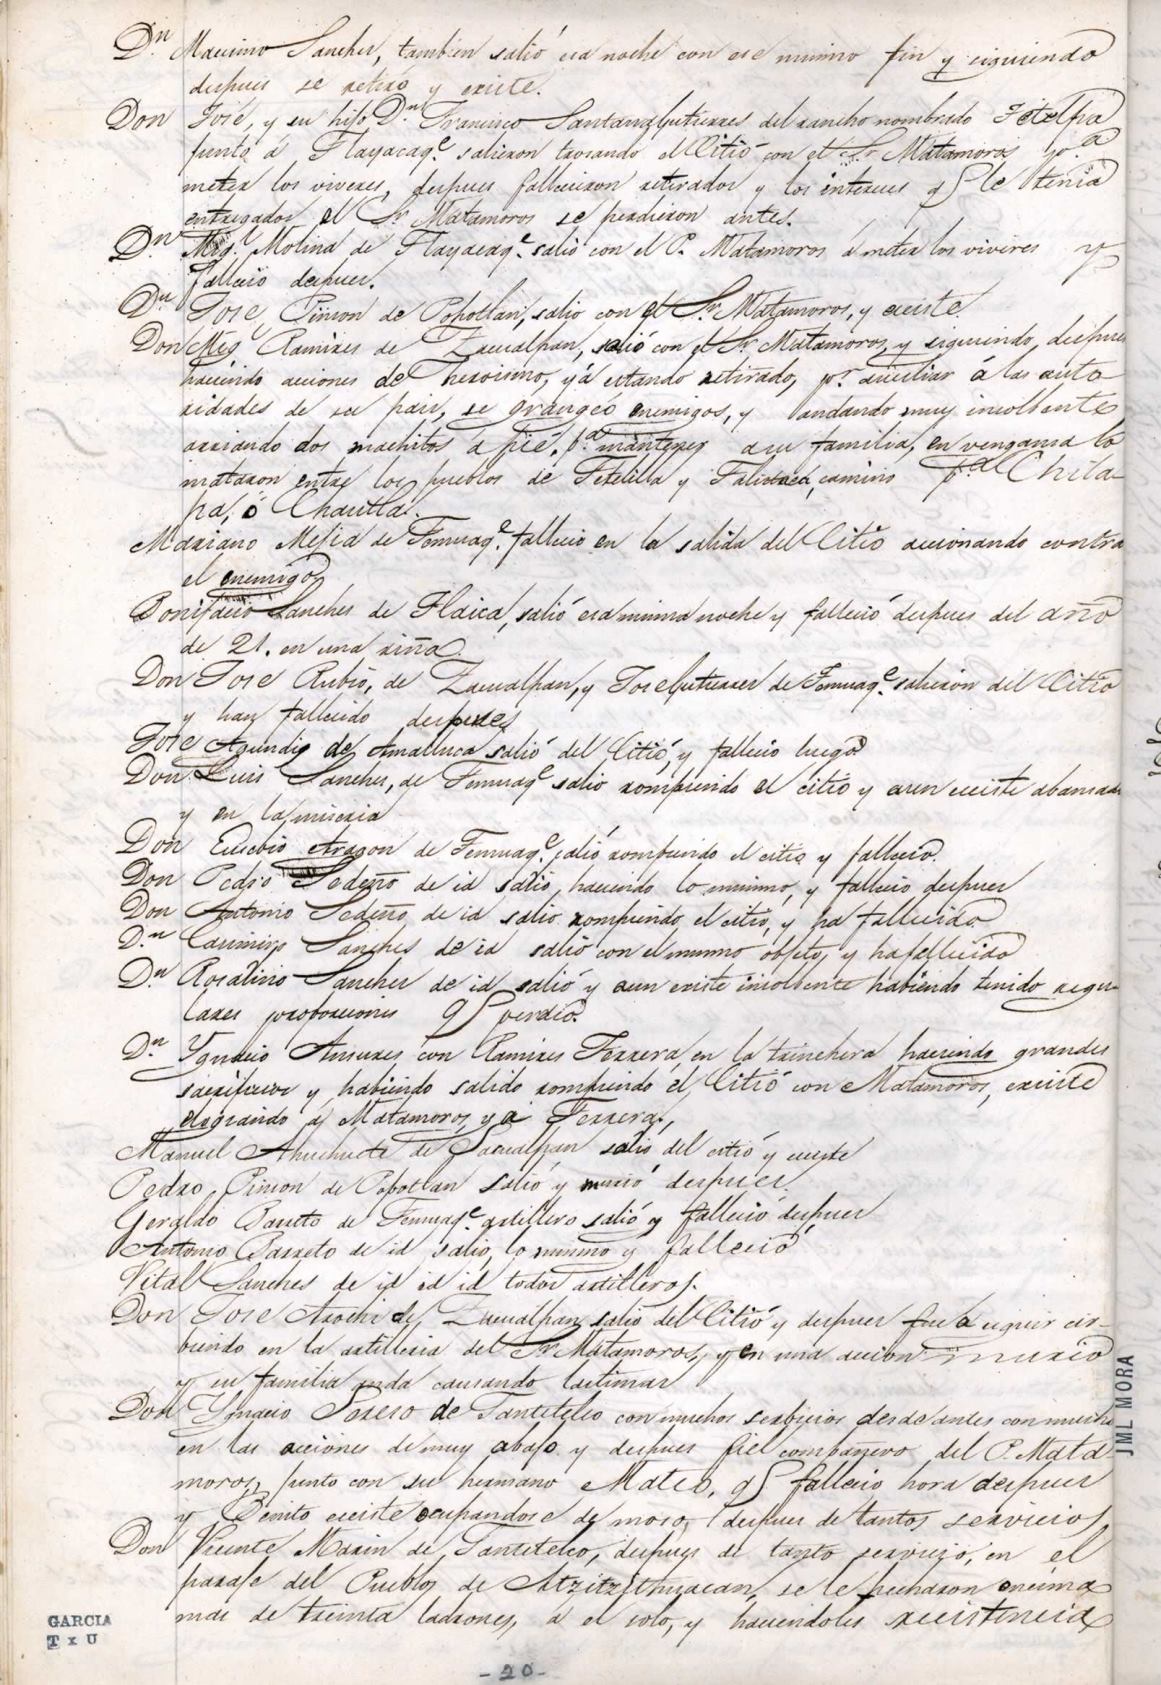 Dn. Macsimo Sanches, tambien salió esa noche con ese mismo fin y siguiendo
despues se retiro y existe.
Don José, y su hijo Dn. Francisco Santana Gutierres del rancho nombrado Tetelpa
junto á Tlayacaqe. salieron trosando el Citió con el Sr. Matamoros pa.
meter los viveres, despues fallecieron retirados y los intereses q le tenia
entregados el Sr. Matamoros se perdieron antes.
Dn. Migl. Molina de Tlayacaqe. salió con el P. Matamoros á meter los viveres y
falleció despues.
Dn. José Pinson de Popotlan, salio con el Sr. Matamoros, y existe.
Don Mig. Ramires de Zacualpan, salió con el Sr. Matamoros, y siguiendo, despues
haciendo acciones de heroismo, yá estando retirado, pr. aucsiliar á las auto
ridades de su pais, se grangeó enemigos, y andando muy insolbente
arriando dos machitos á pié, pa. mantener a su familia, en vengansa lo
mataron entre los pueblos de Tetelilla y camino pa. Chila
pa, ó Chautla.
Mariano Mejia de Temuaqe. falleció en la salida del Citió accionando contra
el enemigo
Bonifacio Sanches de Tlaica, salió esa misma noche y falleció despues del año
de 21. en una riña.
Don Jose Rubio, de Zacualpan, y Jose Gutierrez de Temuaqe. salieron del Citió
y han fallecido despues
Jose Agundis de Amatluca salió del Citió, y falleció luego
Don Luis Sanches, de Temuaqe. salió rompiendo el citió y aun existe abansado
y en la miseria
Don Eusebio Aragon de Temuaqe. salió rompiendo el citio y falleció.
Don Pedro Sedeño de id salió, haciendo lo mismo, y falleció despues
Don Antonio Sedeño de id salió rompiendo el citió, y ha fallecido
Dn. Casimiro Sanches de id salió con el mismo objeto, y ha fallecido
Dn. Rosalino Sanches de id salió y aun existe insolbente habiendo tenido regu
lares proporciones q perdió.
Dn. Ygnacio Ansures con Ramires Ferrera, en la trinchera haciendo grandes
sacrificios y habiendo salido rompiendo el Citió con Matamoros, existe
elogiando á Matamoros, y á Ferrera,
Manuel Ahuehuete de Sacualpan salió del citió y existe
Pedro Pinson de Popotlan salió y murió despues
Geraldo Barreto de Temuaqe. artillero salió y falleció despues
Antonio Barreto de id salió, lo mismo y falleció
Vital Sanches de id id id todos artilleros.
Don Jose Arochi de Zacualpan salió del Citió y despues fue á seguir cir-
biendo en la artilleria del Sr. Matamoros, y en una accion murió
y su familia anda causando lastimas
Don Ygnacio Sosero de Tantetelco con muchos serbicios desde antes con mucho
en las acciones de muy abajo y despues fiel compañero del P. Mata
moros, junto con su hermano Mateo, q falleció hora despues
y Benito existe ocupandose de moso, despues de tantos servicios
Don Vicente Marin de Tantetelco, despues de tanto servicio, en el
paraje del Pueblo de se le hecharon encima
mas de treinta ladrones, á el solo, y haciendoles recistencia
GARCIA
T x U
JML MORA
-20-